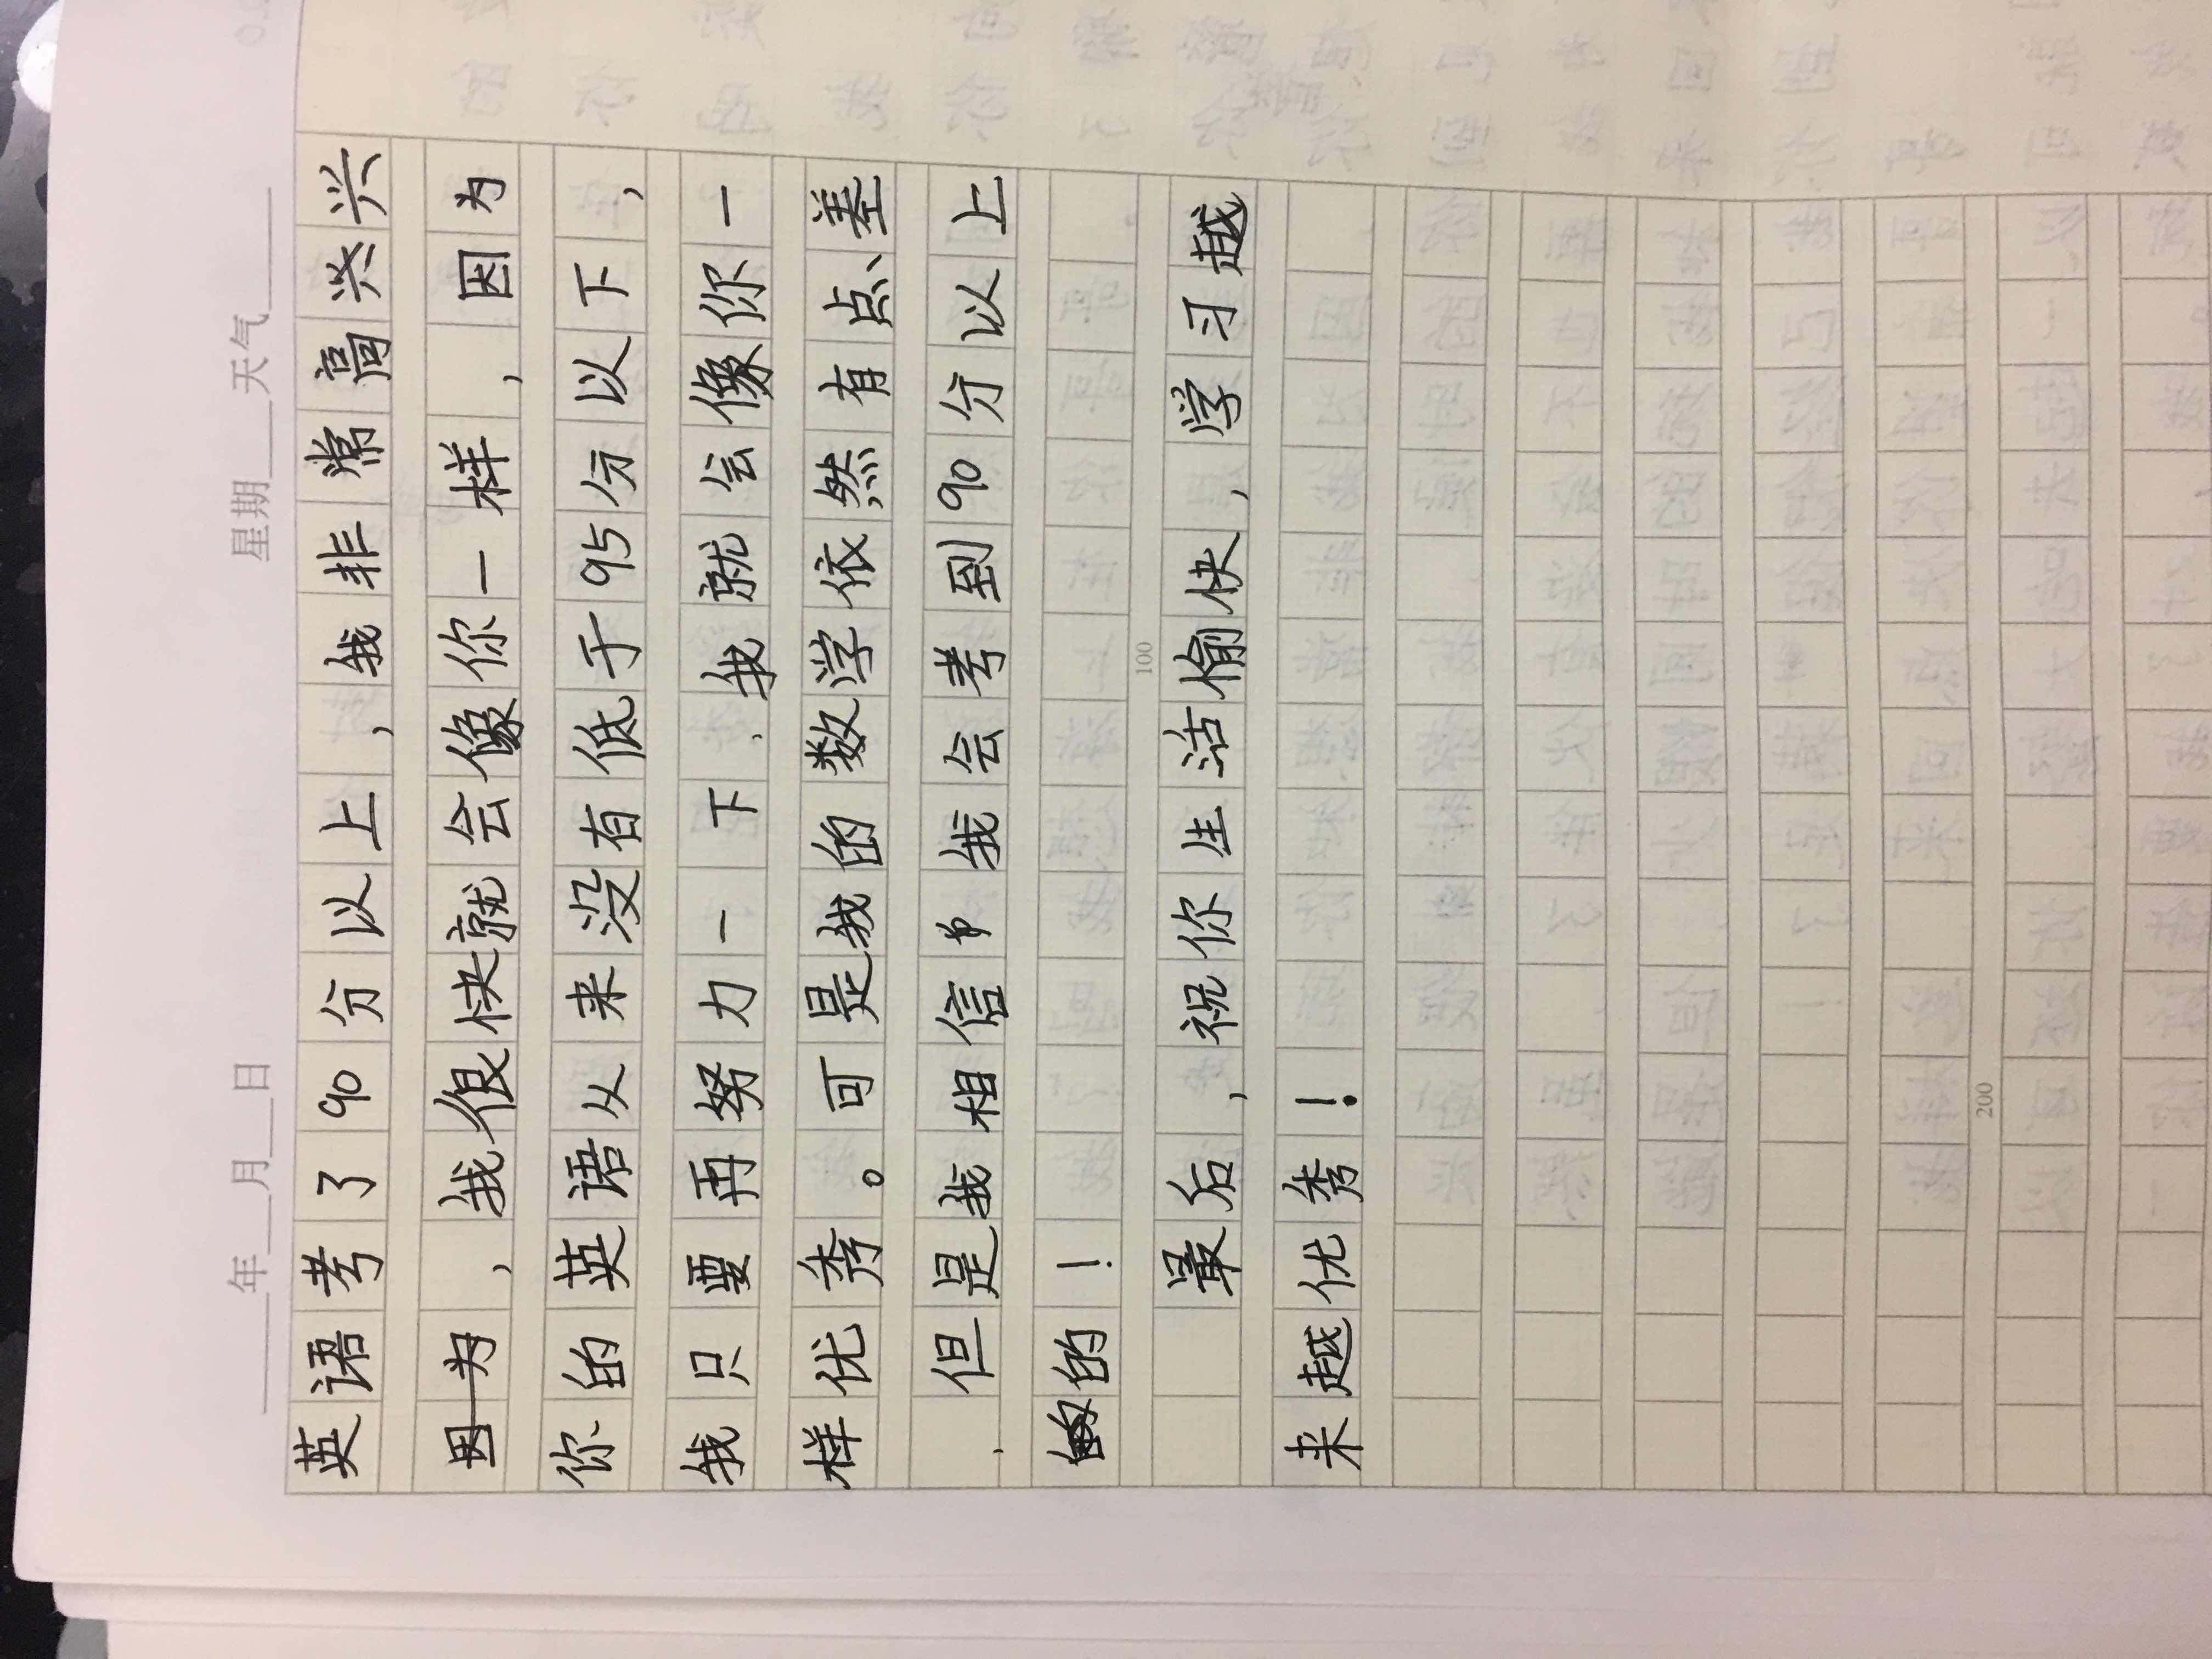 ____年__月__日 星期__天气____
英语考了90分以上，我非常高兴兴
因为，我很快就会像你一样，因为
你的英语从来没有低于95分以下，
我只要再努力一下，我就会像你一
样优秀。可是我的数学依然有点差
，但是我相信我会考到90分以上
的！
100
最后，祝你生活愉快，学习越
来越优秀！
200